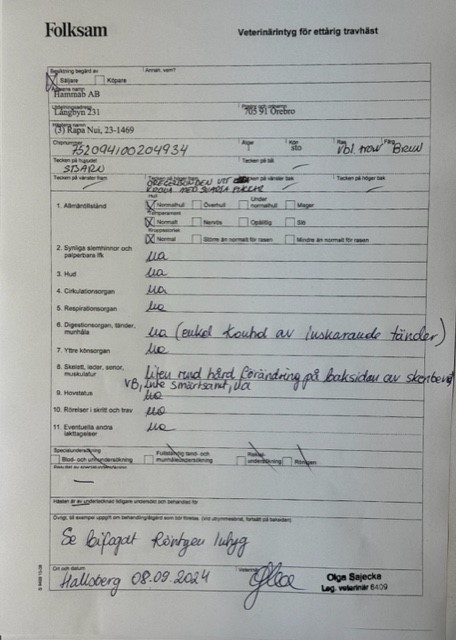 Folksam
Veterinärintyg för ettårig travhäst
Besiktning begärd av
Annan, vem?
Säljare Köpare
Hammab AB
Utdelningsadress
Långbyn 231 705 91 Örebro
Hästens namn
(3) Rapa Nui, 23-1469
Chipnummer Ålder Kön Ras Färg
752094100204934 sto vbl trav Brun
Tecken på huvudet Tecken på bål
STJÄRN
Tecken på vänster fram Tecken på vänster bak Tecken på höger bak
OREGELBUNDEN VIT
KRONA MED SVARTA FLÄCKAR
1. Allmäntillstånd
Hull
Normalhull Överhull Under normalhull Mager
Temperament
Normalt Nervös Opålitlig Slö
Kroppsstorlek
Normal Större än normalt för rasen Mindre än normalt för rasen
2. Synliga slemhinnor och palperbara lfk
ua
3. Hud
ua
4. Cirkulationsorgan
ua
5. Respirationsorgan
ua
6. Digestionsorgan, tänder, munhåla
ua (enkel kontrol av inskarande tänder)
7. Yttre könsorgan
ua
8. Skelett, leder, senor, muskulatur
Liten rund hård förändring på baksidan av skenbenet
VB, inte smärtsamt, ua
9. Hovstatus
ua
10. Rörelser i skritt och trav
ua
11. Eventuella andra iakttagelser
ua
Specialundersökning
Blod- och urinundersökning Fullständig tand- och munhåleundersökning Rektalundersökning Röntgen
Hästen är av undertecknad tidigare undersökt och behandlad för
Övrigt, till exempel uppgift om behandling/åtgärd som bör företas. (Vid utrymmesbrist, fortsätt på baksidan)
Se bifogat Röntgen Intyg
Ort och datum
Veterinär
Hallsberg 08.09.2024
Olga Sajecka
Leg. veterinär 6409